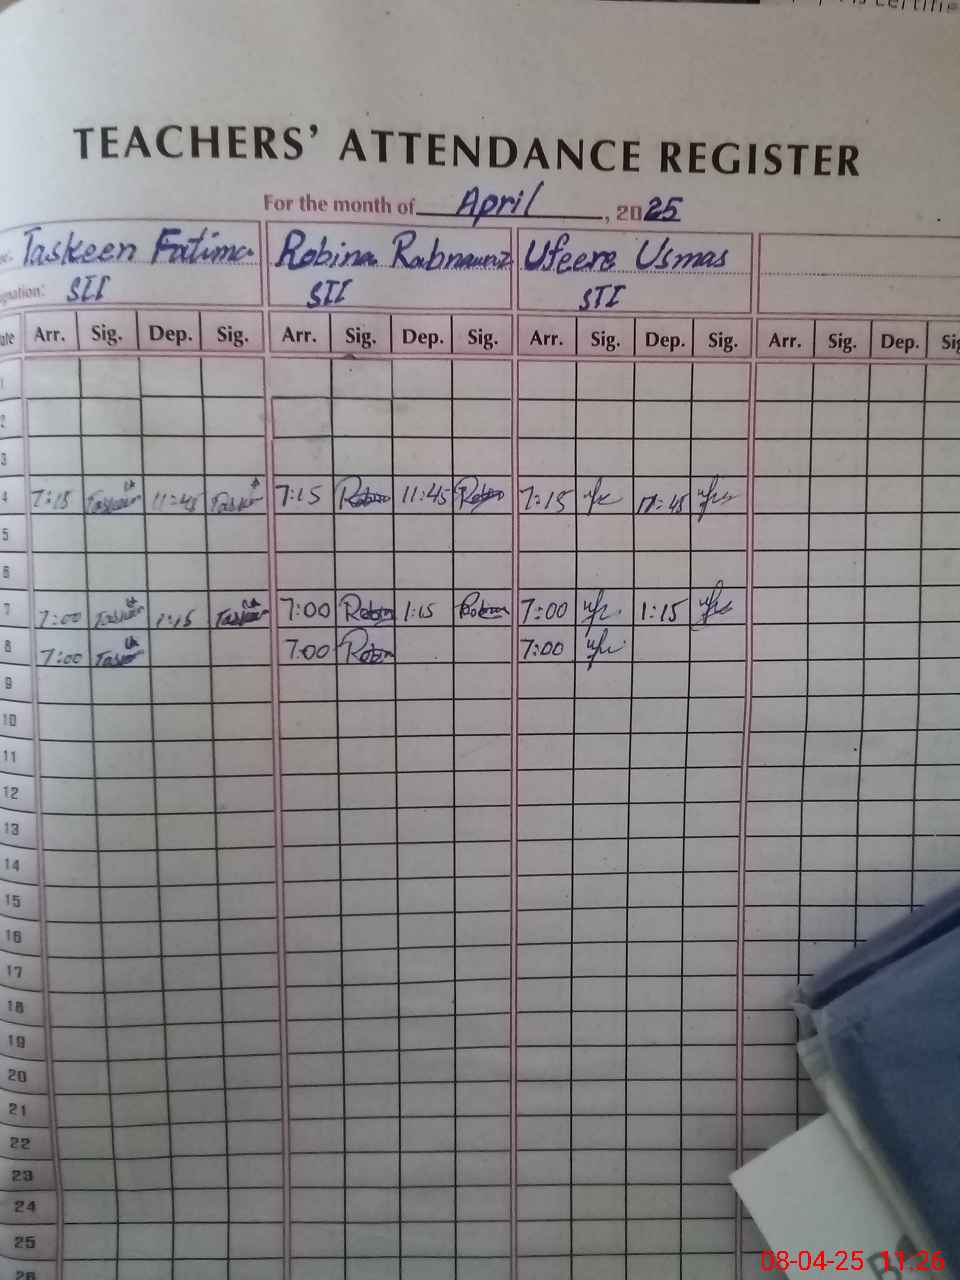 TEACHERS' ATTENDANCE REGISTER
For the month of April, 2025
Taskeen Fatima Robina Rabnawaz Ufeera Usmas
gnation: STI STI STI
ate Arr. Sig. Dep. Sig. Arr. Sig. Dep. Sig. Arr. Sig. Dep. Sig. Arr. Sig. Dep. Sig
1
2
3
4 7:15 Taskeen 11:45 Taskeen 7:15 Robina 11:45 Robina 7:15 11:45
5
6
7 7:00 Taskeen 1:15 Taskeen 7:00 Robina 1:15 Robina 7:00 1:15
8 7:00 Taskeen 7:00 Robina 7:00
9
10
11
12
13
14
15
16
17
18
19
20
21
22
23
24
25
26
08-04-25 11:26